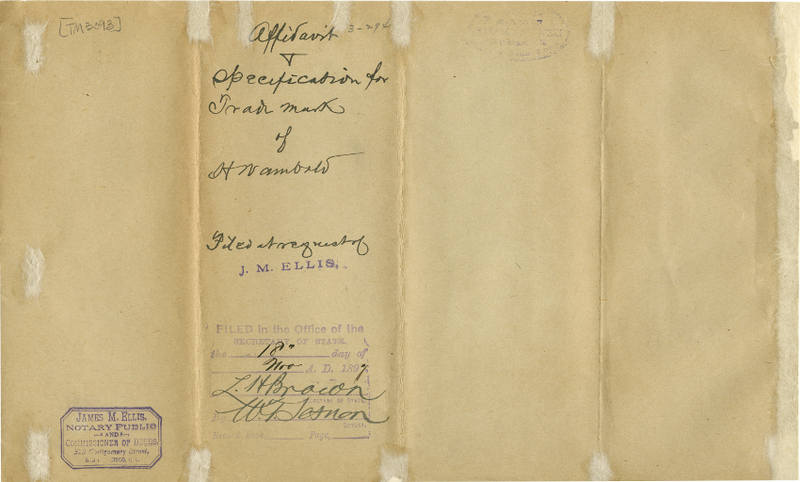 [TM3093]
Affidavit
3-294
+
Specification for
Trade mark
of
H Wambold
Filed at request of
J. M. ELLIS,
FILED in the Office of the
SECRETARY OF STATE.
the 18" day of
Nov A. D. 1897
L. H. Brown
SECRETARY OF STATE
Deputy.
Record Book Page,
JAMES M. ELLIS,
NOTARY PUBLIC
AND
COMMISSIONER OF DEEDS,
Montgomery Street,